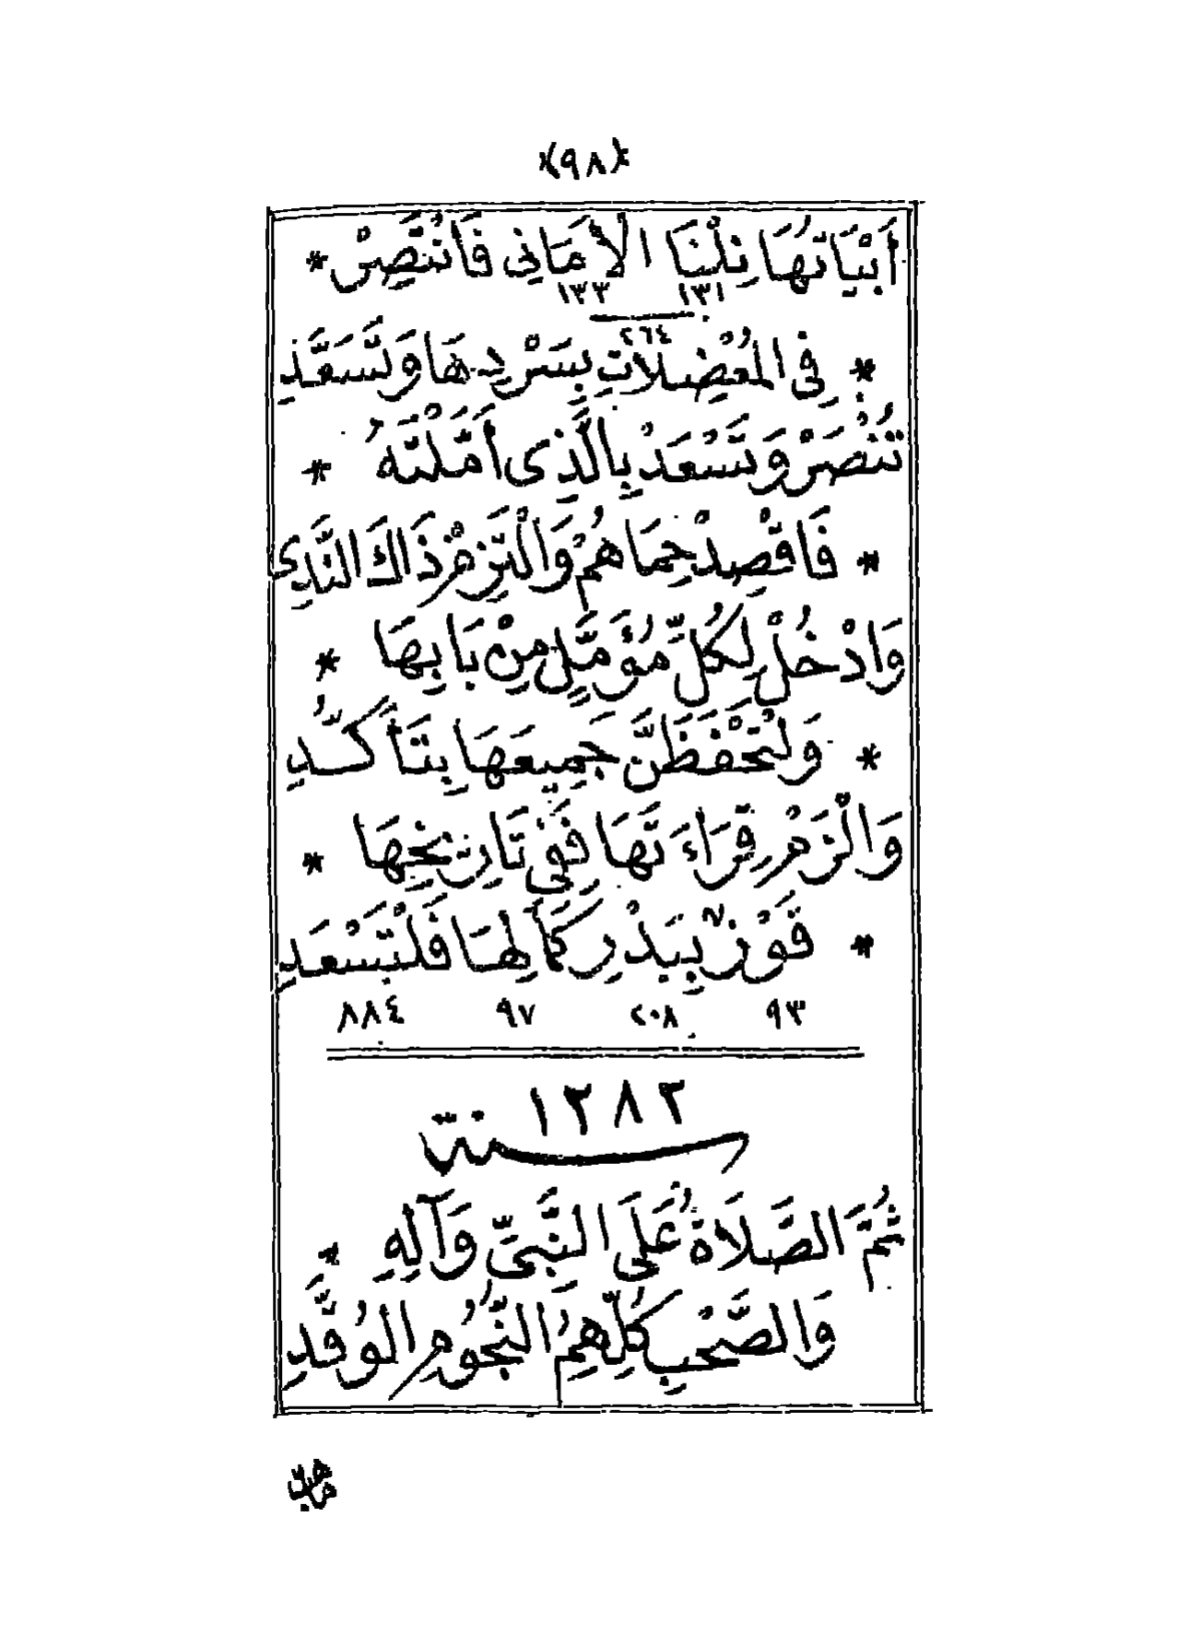 (٩٨)
أَبْيَاتُهَا نِلْنَا الأَمَانِي فَانْتَصِرْ *
١٣١ ١٣٣
٢٦٤
* فِي المُعْضِلَاتِ بِسَرْدِهَا وَتَسَعَّدِ
تُنْصَرْ وَتَسْعَدْ بِالَّذِي أَمَّلْتَهُ *
* فَاقْصِدْ حِمَاهُمْ وَالْتَزِمْ ذَاكَ النَّادِي
وَادْخُلْ لِكُلِّ مُؤَمَّلٍ مِنْ بَابِهَا *
* وَلْتَحْفَظَنَّ جَمِيعَهَا بِتَأَكُّدِ
وَالْزَمْ قِرَاءَتَهَا فَفِي تَارِيخِهَا *
* فَوْزٌ بِبَدْرِ كَمَالِهَا فَلْتَسْعَدِ
٩٣ ٢٠٨ ٩٧ ٨٨٤
١٢٨٢
سنة
ثُمَّ الصَّلَاةُ عَلَى النَّبِيِّ وَآلِهِ *
وَالصَّحْبِ كُلِّهِمُ النُّجُومِ الوُقَّدِ